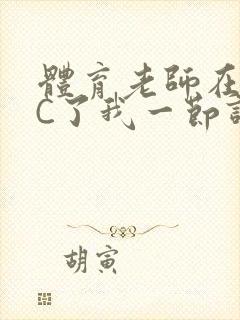 體育老師在
C了我一節
胡寅